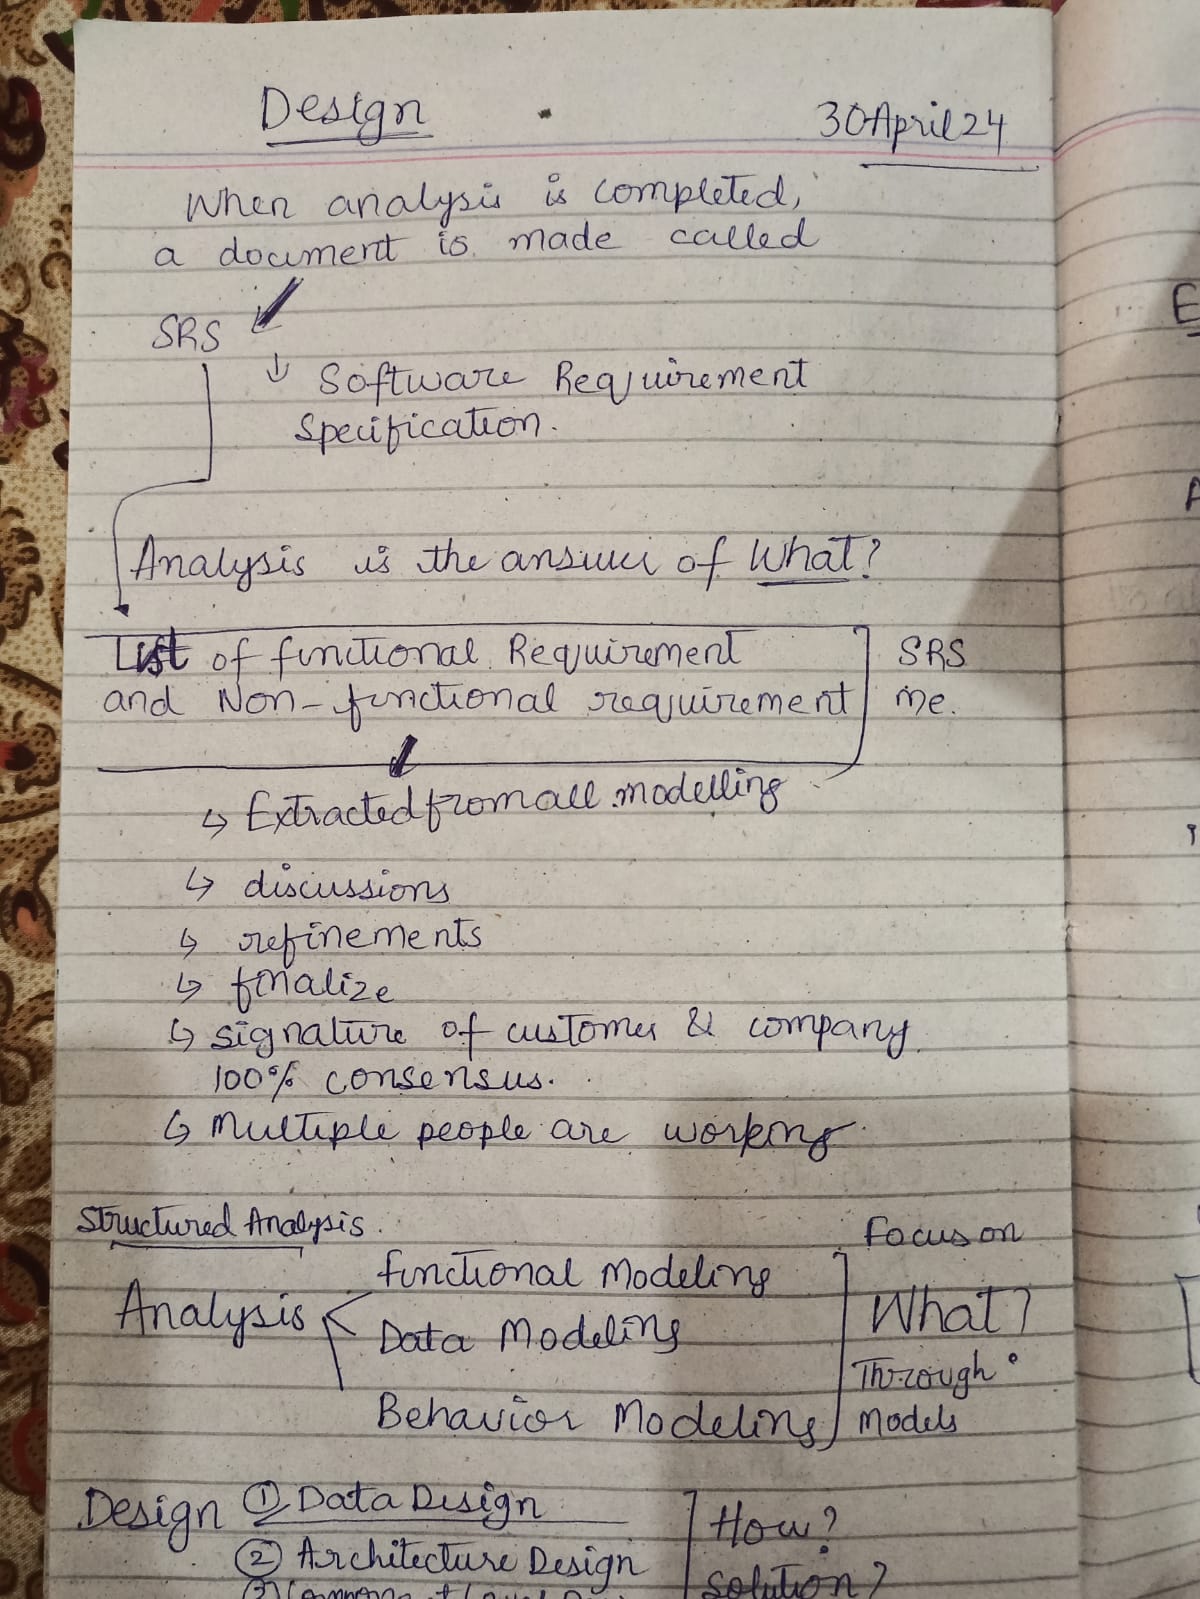 Design
30 April 24
When analysis is completed,
a document is made called
SRS
Software Requirement
Specification.
Analysis is the answer of What?
List of functional Requirement
and Non-functional requirement
SRS
me.
Extracted from all modelling
discussions
refinements
finalize
signature of customer & company
100% consensus.
Multiple people are working
Structured Analysis.
Analysis
functional Modeling
Data Modeling
Behavior Modeling
Focus on
What?
Through
Models
Design
① Data Design
② Architecture Design
How?
Solution?